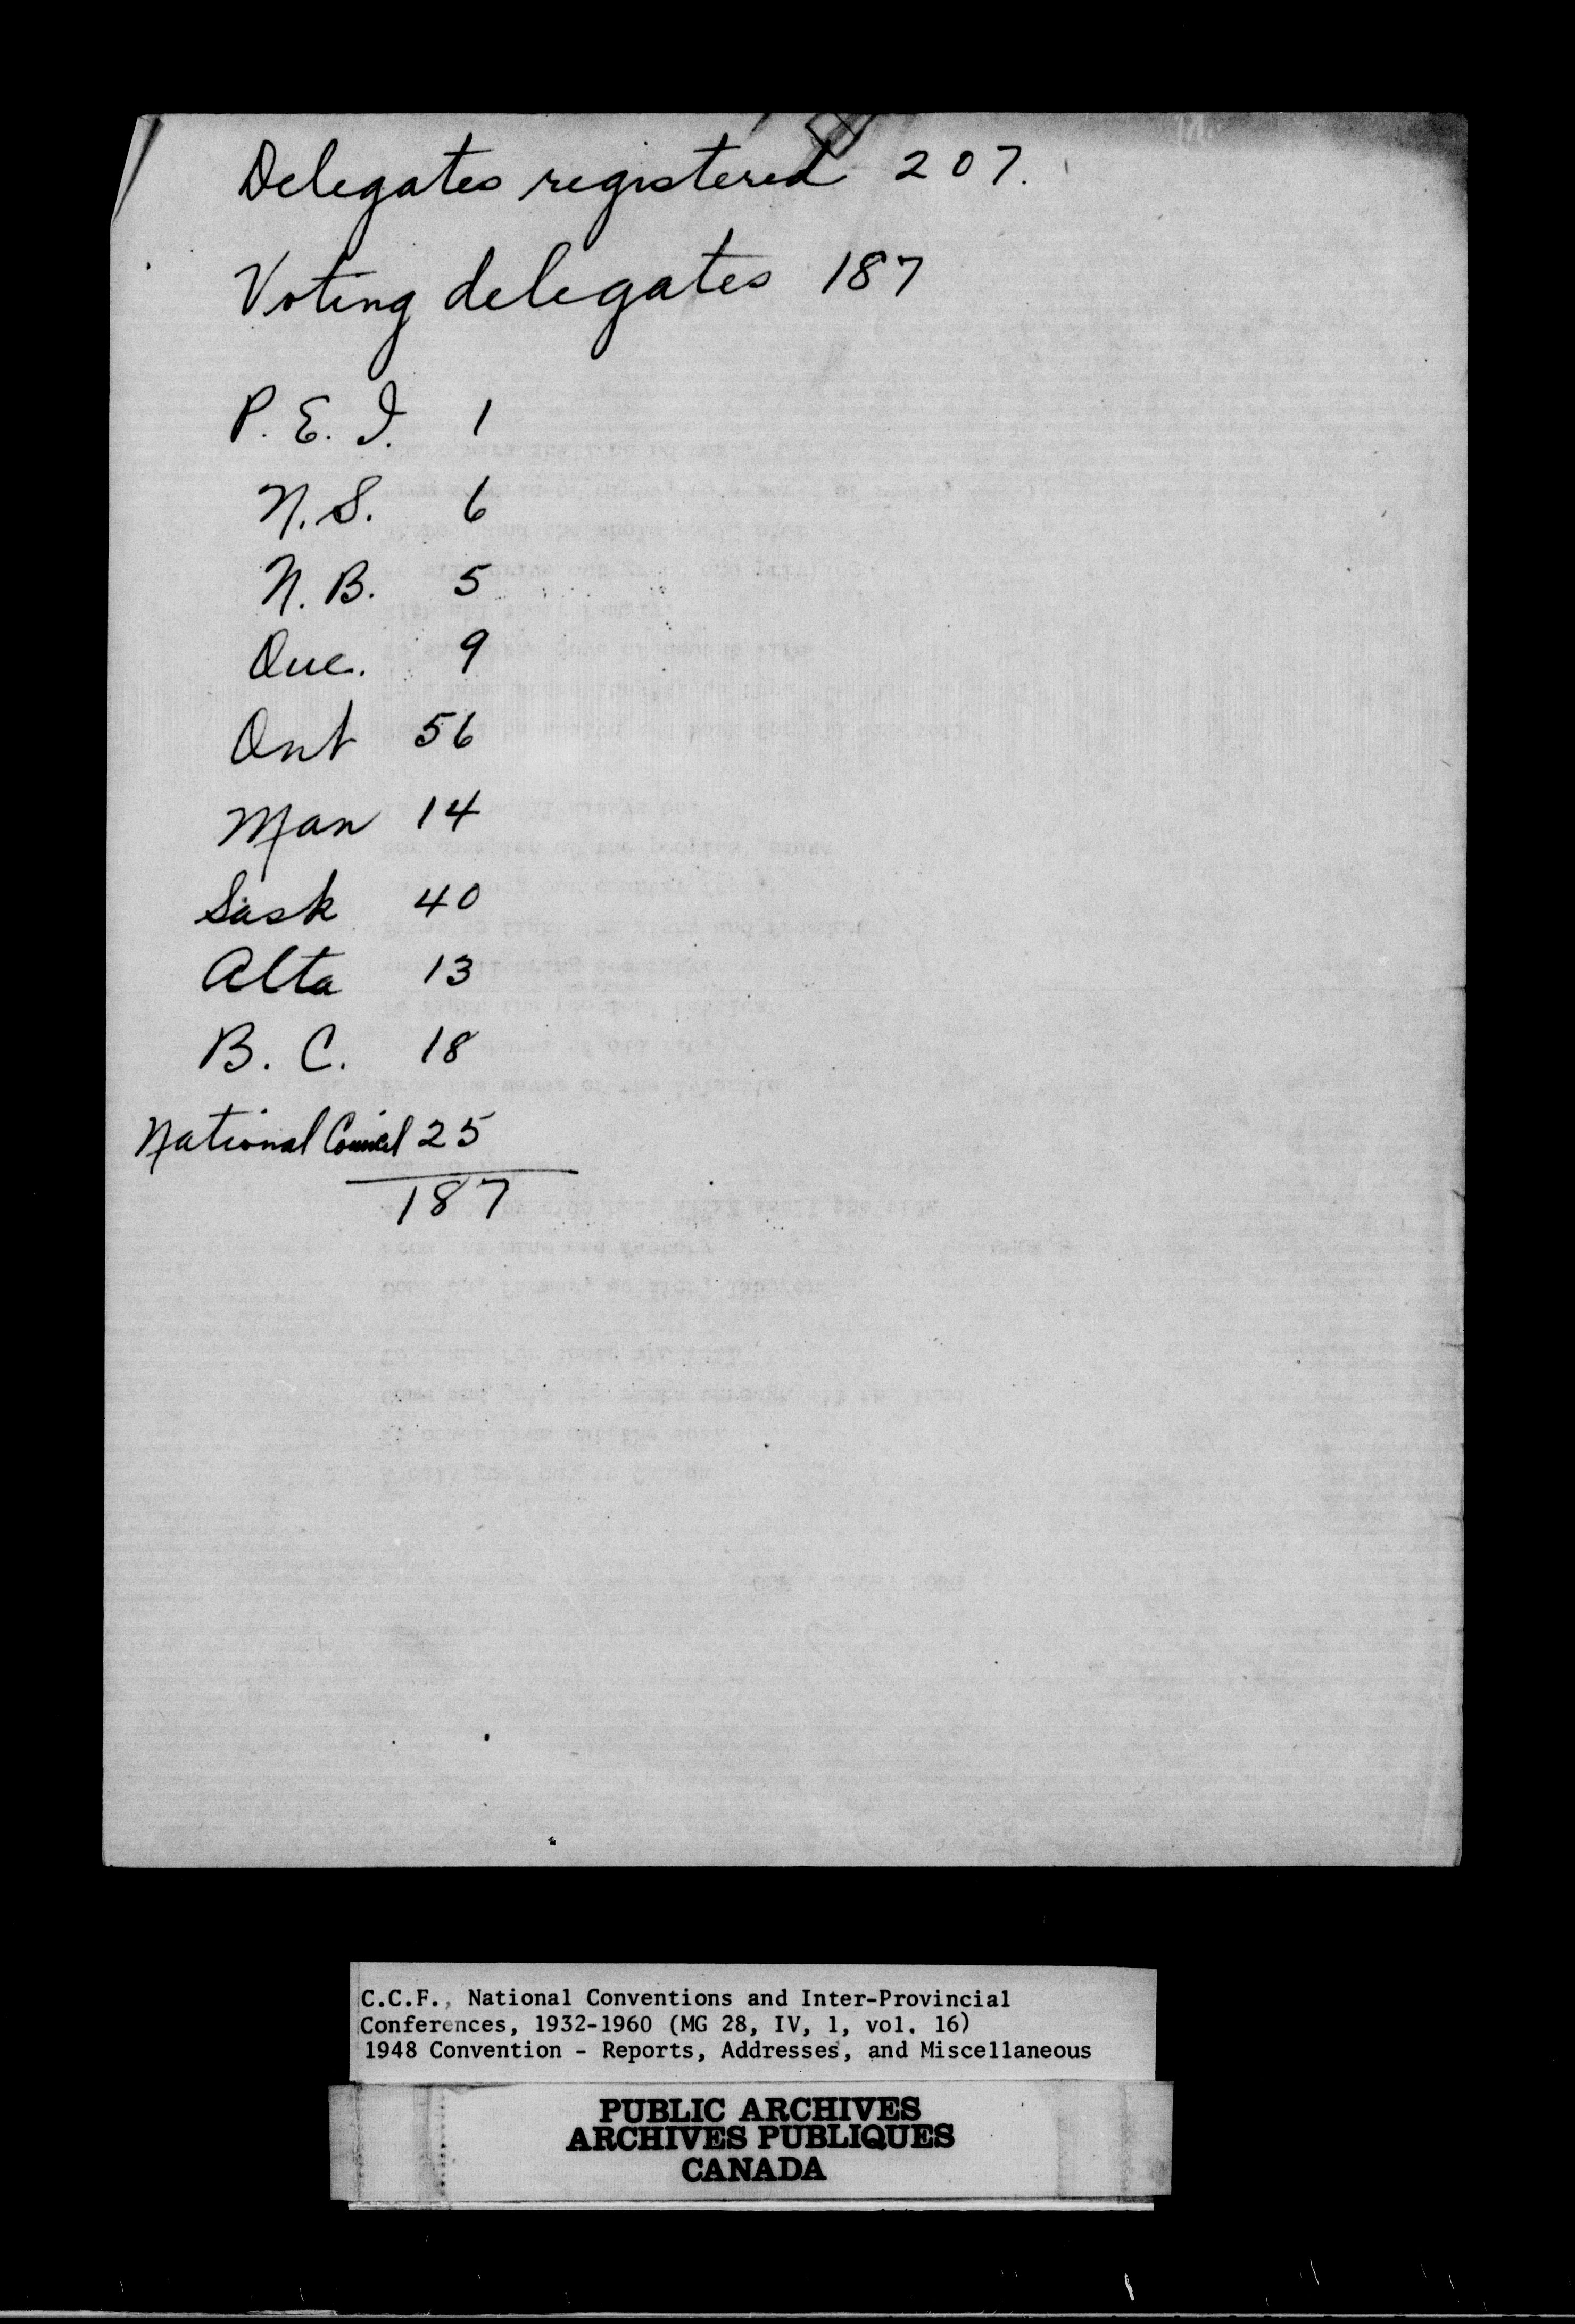 Delegates registered 207.
Voting delegates 187
P. E. I. 1
N. S. 6
N. B. 5
Que. 9
Ont 56
Man 14
Sask 40
Alta 13
B. C. 18
National Council 25
187
C.C.F., National Conventions and Inter-Provincial
Conferences, 1932-1960 (MG 28, IV, 1, vol. 16)
1948 Convention - Reports, Addresses, and Miscellaneous
PUBLIC ARCHIVES
ARCHIVES PUBLIQUES
CANADA